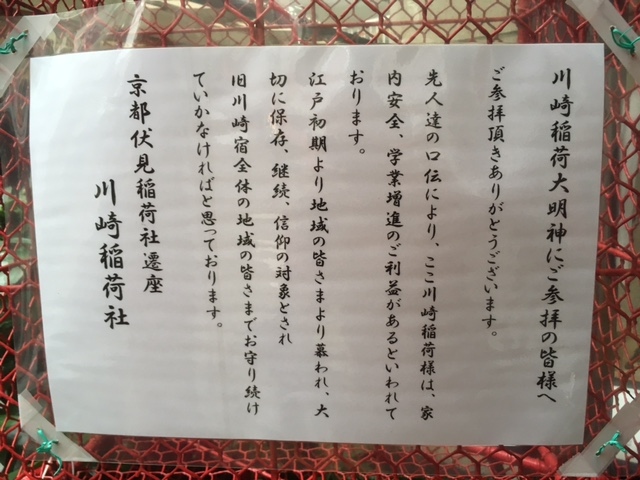 川崎稲荷大明神にご参拝の皆様へ
ご参拝頂きありがとうございます。
先人達の口伝により、ここ川崎稲荷様は、家
内安全、学業増進のご利益があるといわれて
おります。
江戸初期より地域の皆さまより慕われ、大
切に保存、継続、信仰の対象とされ
旧川崎宿全体の地域の皆さまでお守り続け
ていかなければと思っております。
京都伏見稲荷社遷座
川崎稲荷社